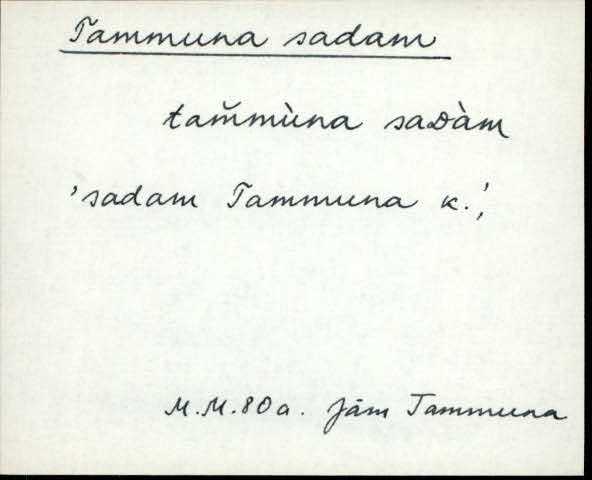 Tammuna sadam
tam̆mùna saDàm
'sadam Tammuna k.',
M.M.80a. Jäm Tammuna